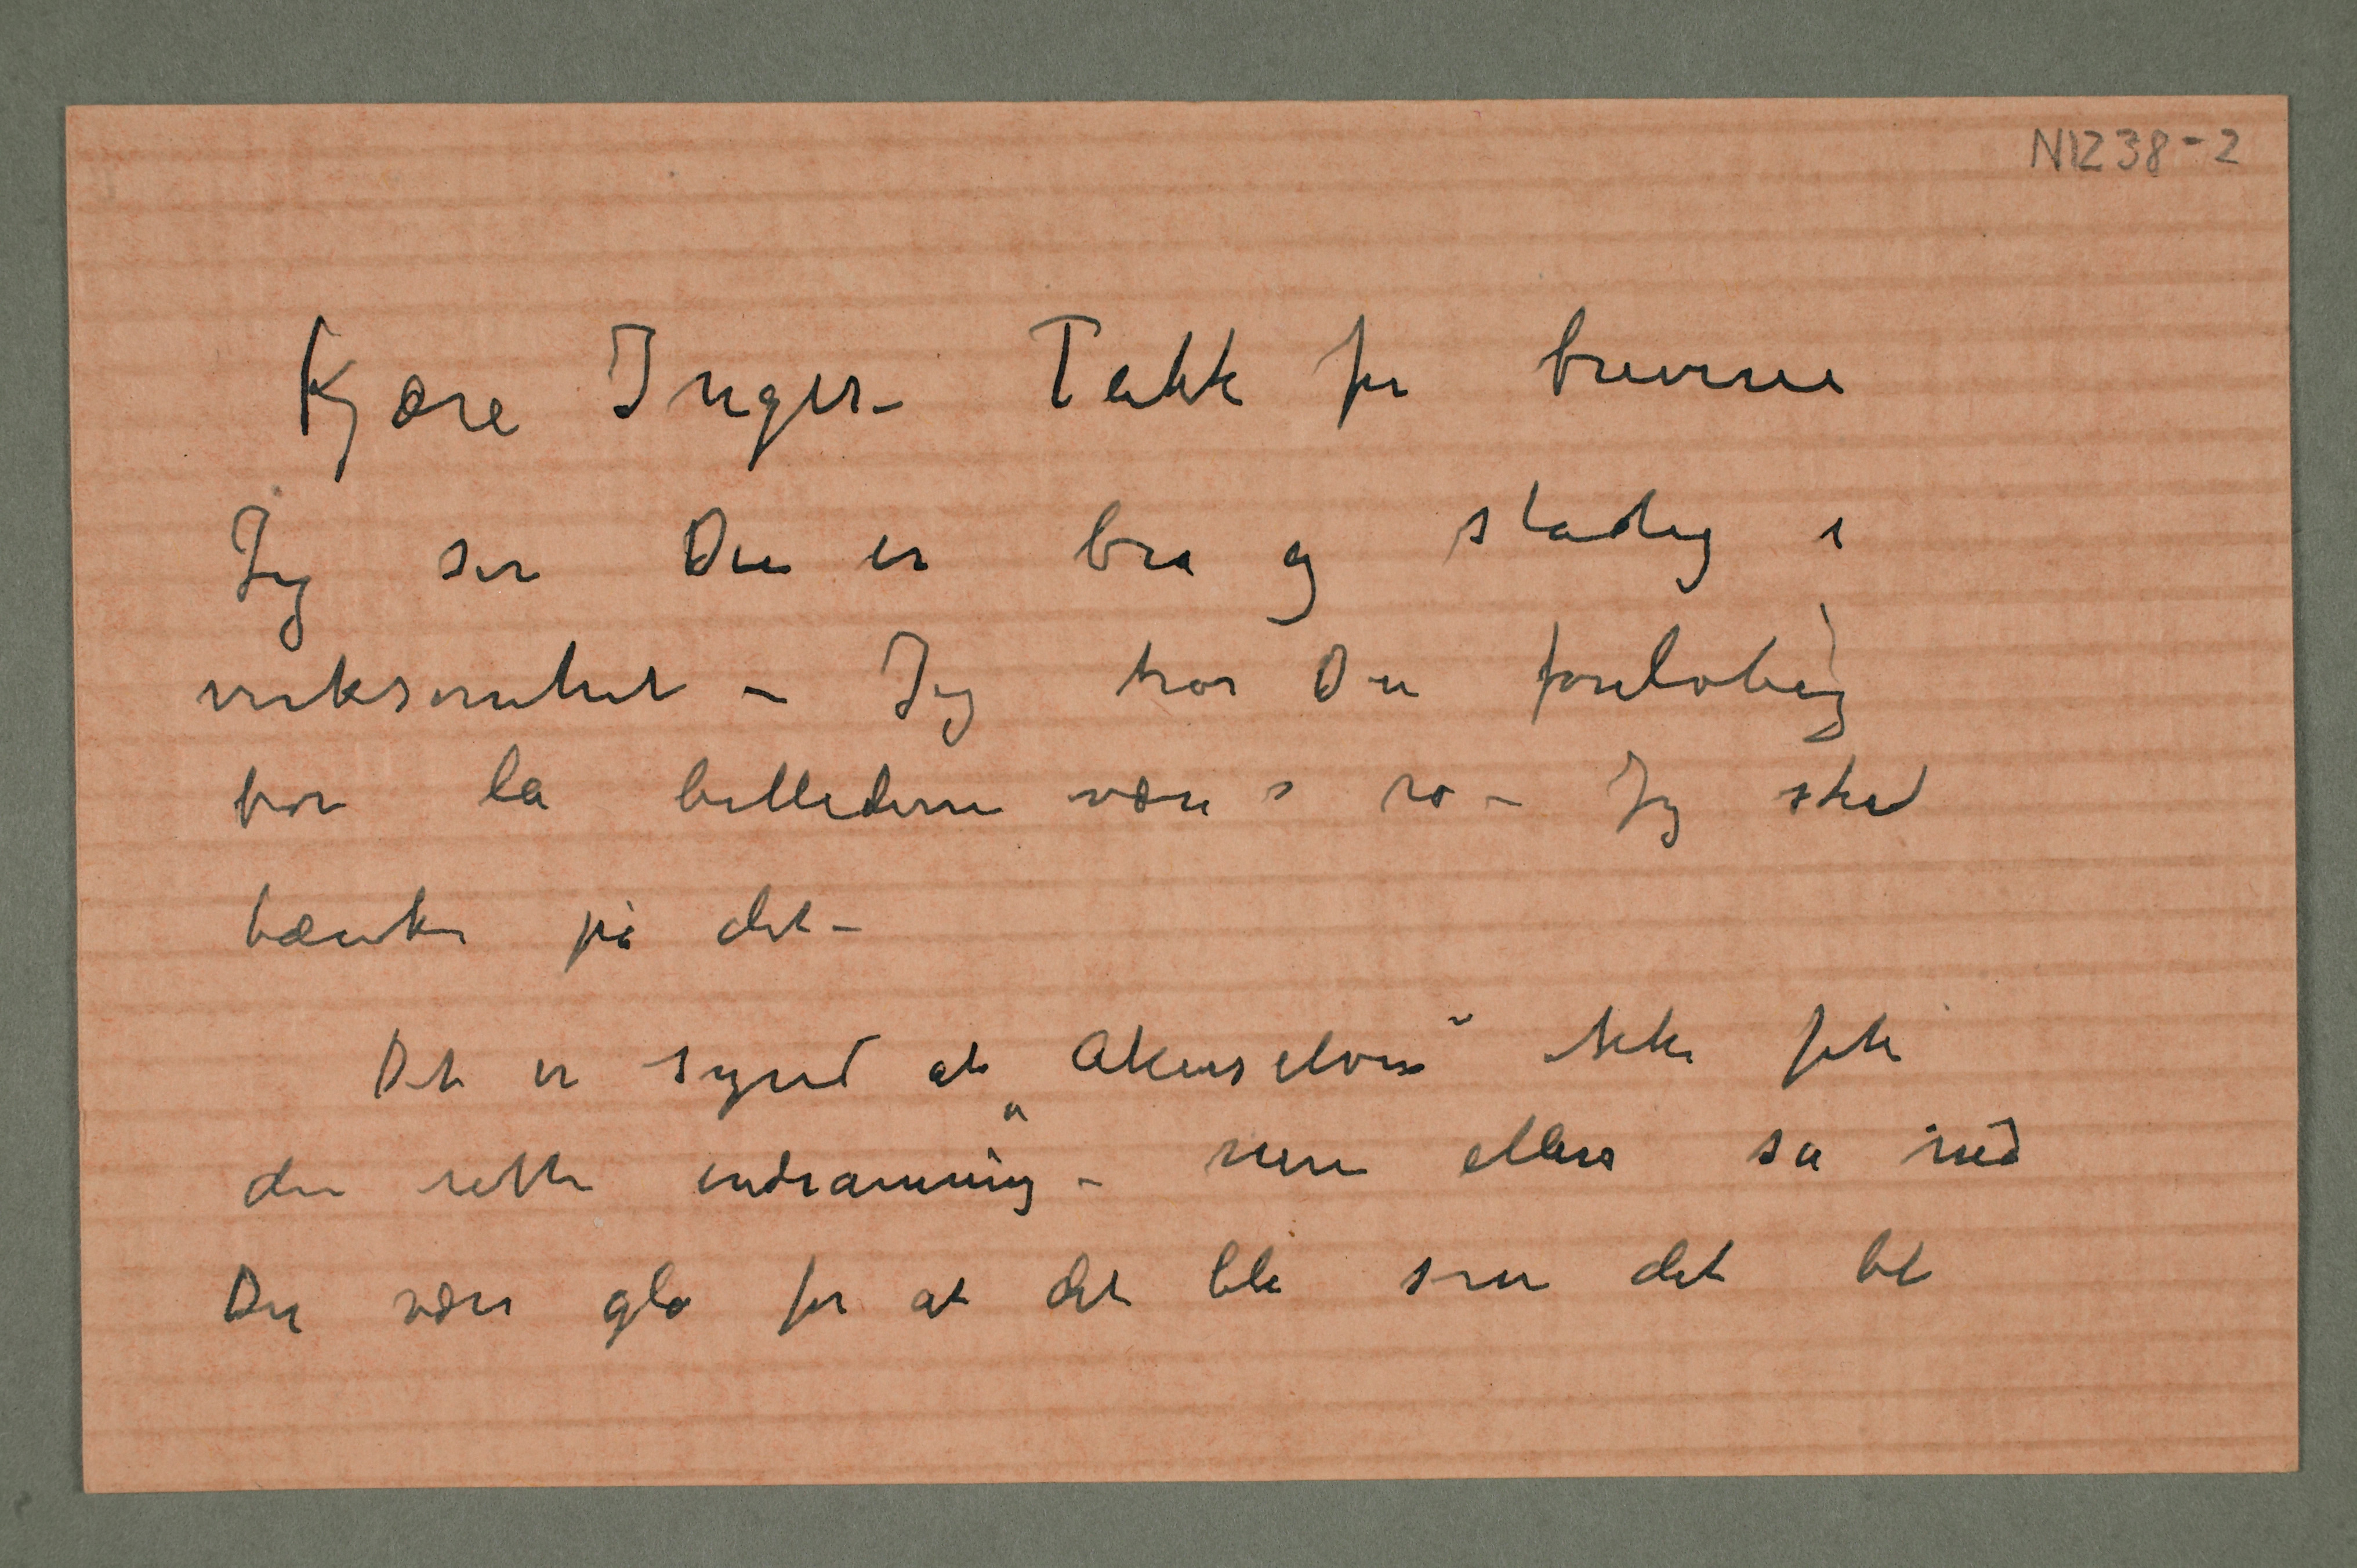 N1238-2
Kjære Inger – Takk for brevene
Jeg ser Du er bra og stadig i
virksomhet – Jeg tror Du foreløbig
bør la billederne være i ro – Jeg skal
tænke på det –
Det er synd at "Akerselven" ikke fik
den rette indramning – men ellers så må
Du være gla for at det ble som det ble